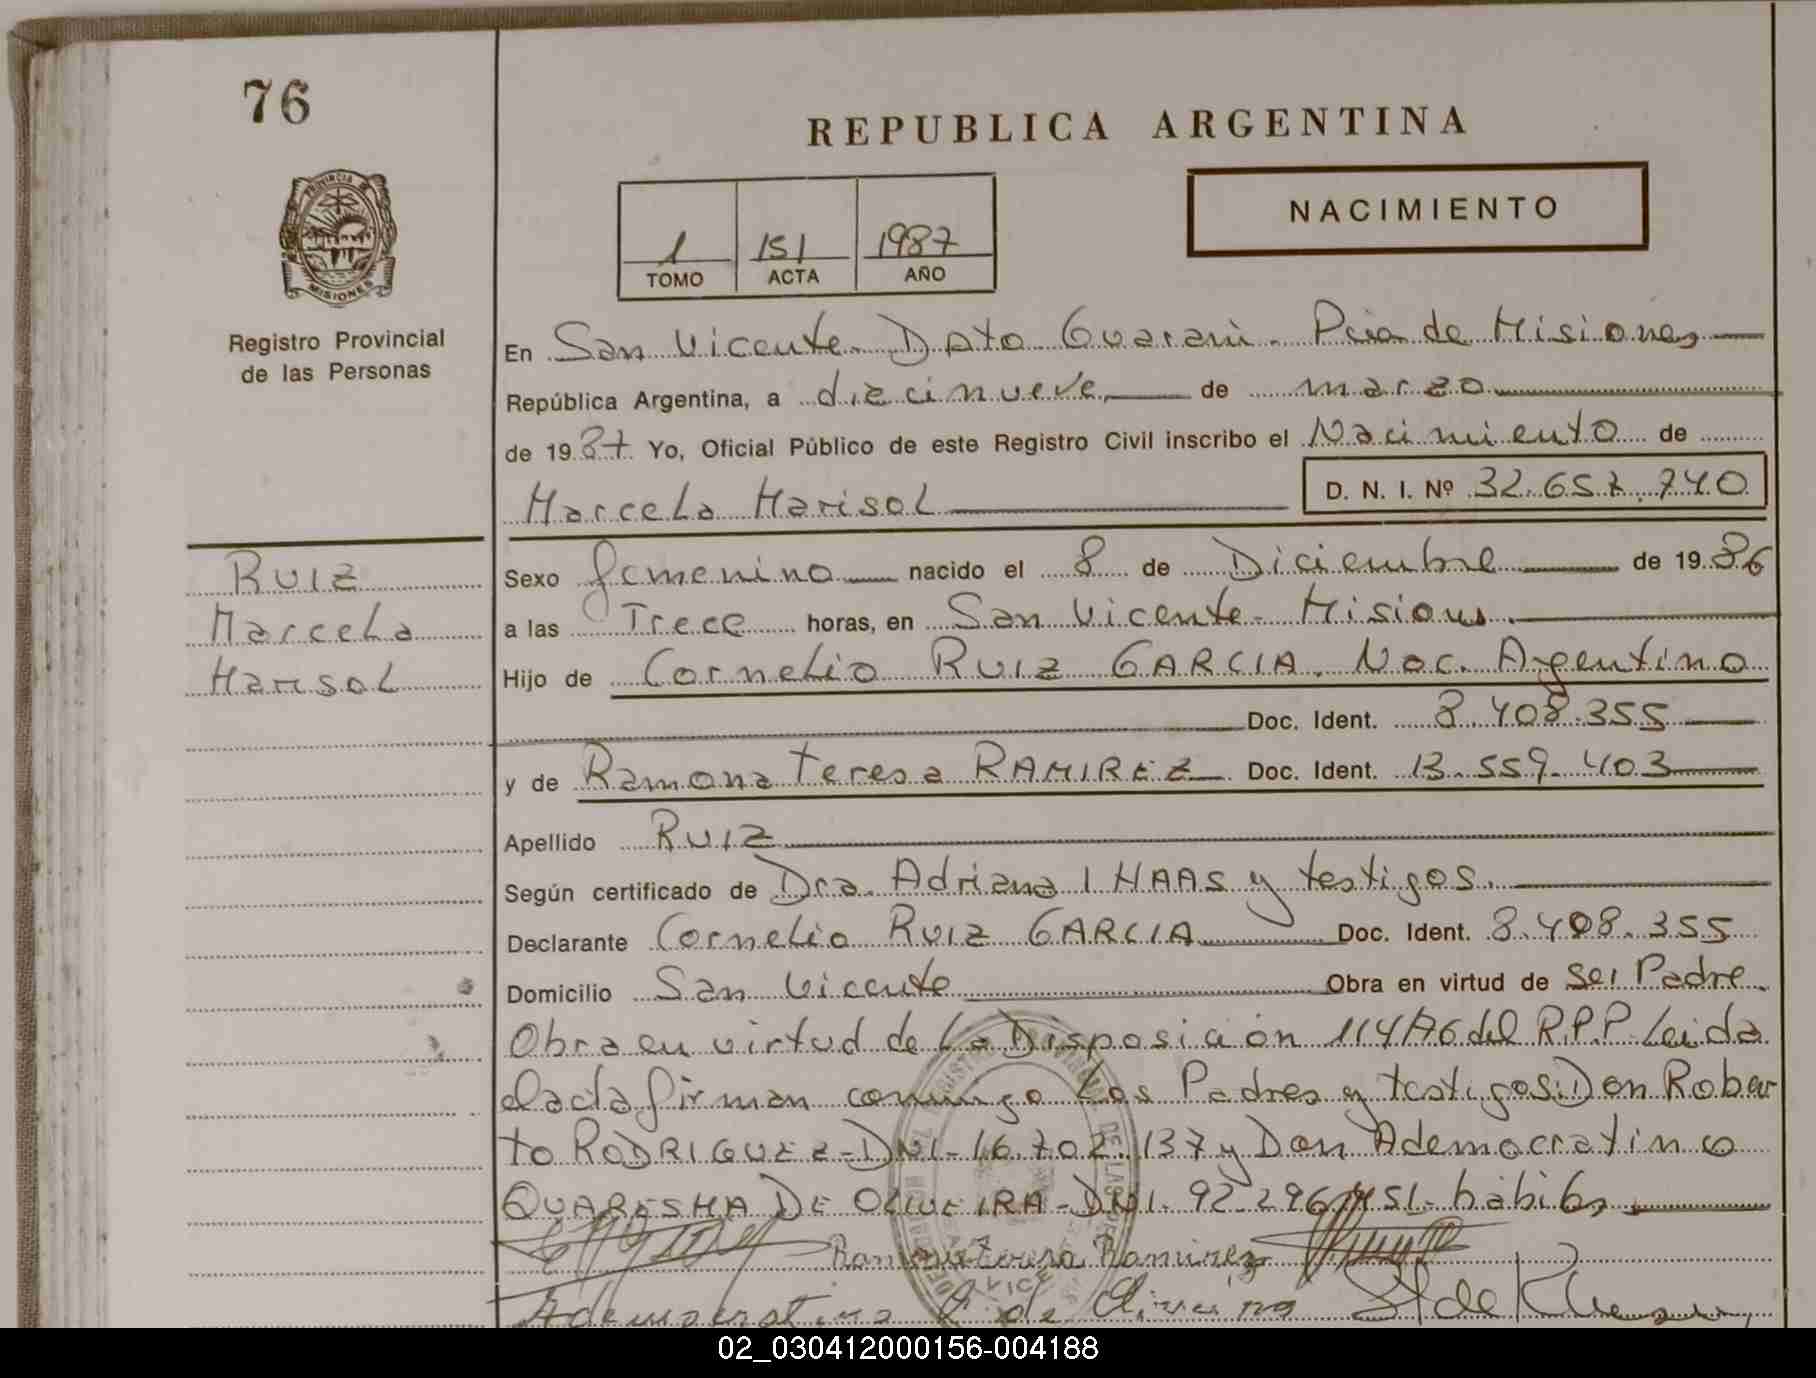 76
REPUBLICA ARGENTINA
NACIMIENTO
1 151 1987
TOMO ACTA AÑO
PROVINCIA DE
MISIONES
Registro Provincial
de las Personas
En San Vicente Dpto Guaraní. Pcia de Misiones
República Argentina, a diecinueve de marzo
de 1987 Yo, Oficial Público de este Registro Civil inscribo el Nacimiento de
Marcela Marisol D. N. I. Nº 32.657.740
Ruiz
Marcela
Marisol
Sexo femenino nacido el 8 de Diciembre de 1986
a las Trece horas, en San Vicente - Misiones.
Hijo de Cornelio RUIZ GARCIA. Nac. Argentino
Doc. Ident. 8.408.355
y de Ramona Teresa RAMIREZ Doc. Ident. 13.559.403
Apellido RUIZ
Según certificado de Dra. Adriana I HAAS y testigos.
Declarante Cornelio RUIZ GARCIA Doc. Ident. 8.408.355
Domicilio San Vicente Obra en virtud de ser Padre.
Obra en virtud de la Disposición 114/76 del R.P.P. Leida
el acta firman conmigo los Padres y testigos: Don Rober
to RODRIGUEZ - DNI - 16.702.137 y Don Ademocratino
QUARESMA DE OLIVEIRA - DNI. 92.296.451 - hábiles.
Ramona Teresa Ramirez
02_030412000156-004188